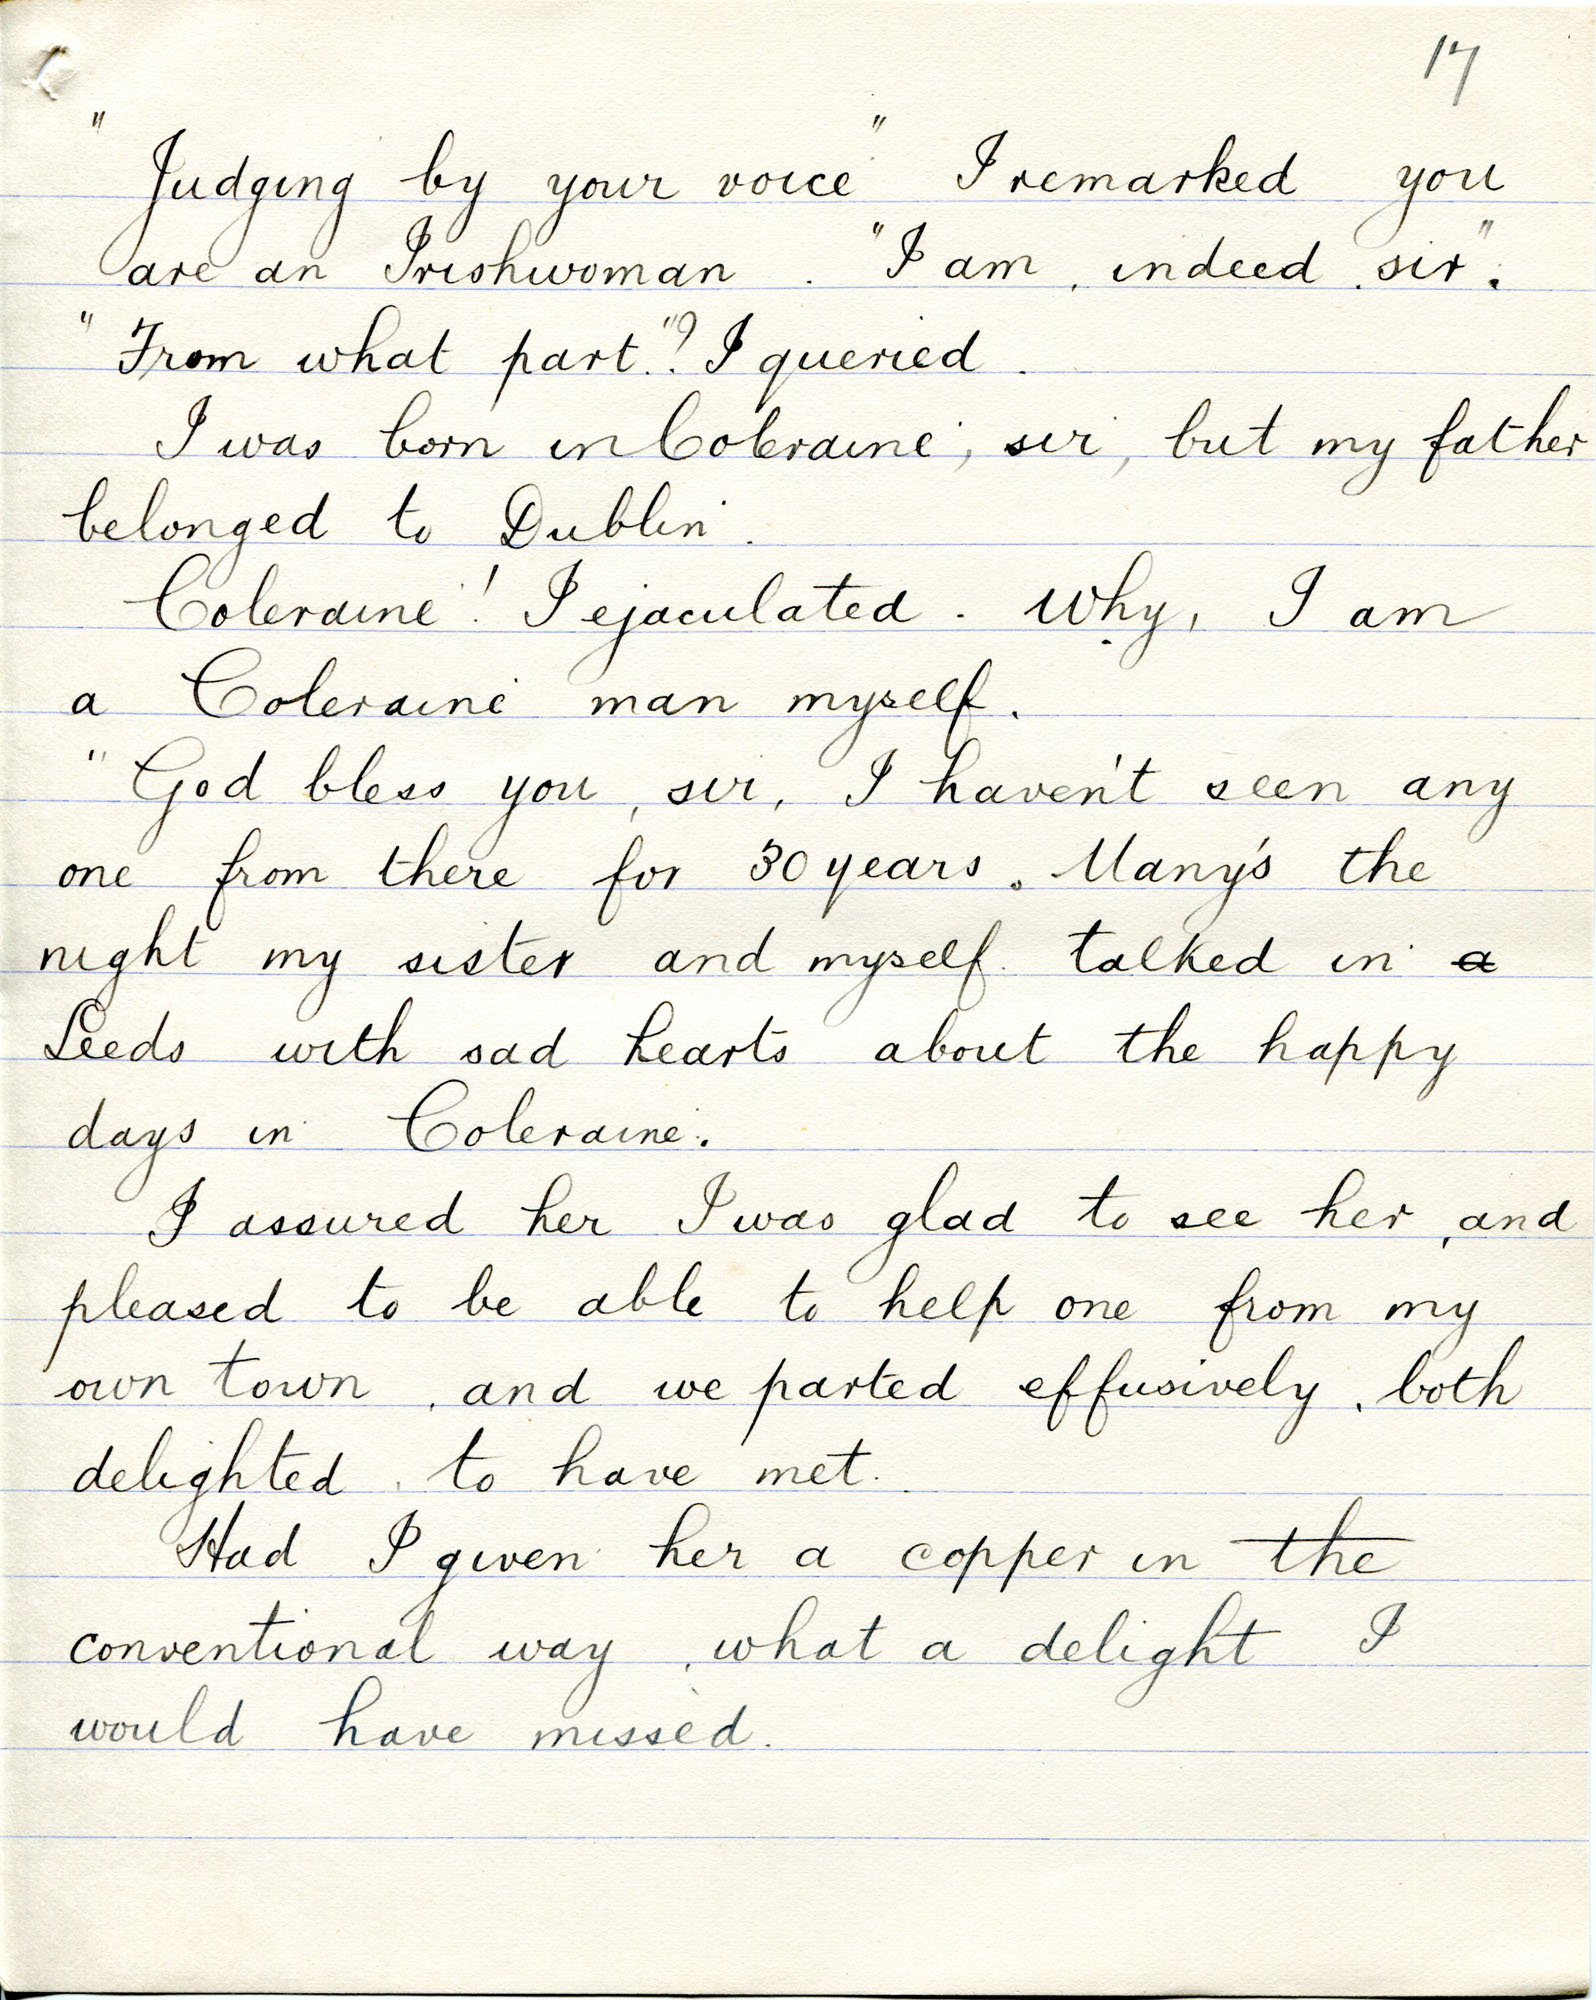 17
"Judging by your voice" I remarked you
are an Irishwoman. "I am, indeed, sir".
"From what part."? I queried.
I was born in Coleraine, sir, but my father
belonged to Dublin.
Coleraine! I ejaculated. Why, I am
a Coleraine man myself.
"God bless you, sir, I haven't seen any
one from there for 30 years. Many's the
night my sister and myself talked in a
Leeds with sad hearts about the happy
days in Coleraine.
I assured her I was glad to see her, and
pleased to be able to help one from my
own town, and we parted effusively, both
delighted to have met.
Had I given her a copper in the
conventional way, what a delight I
would have missed.